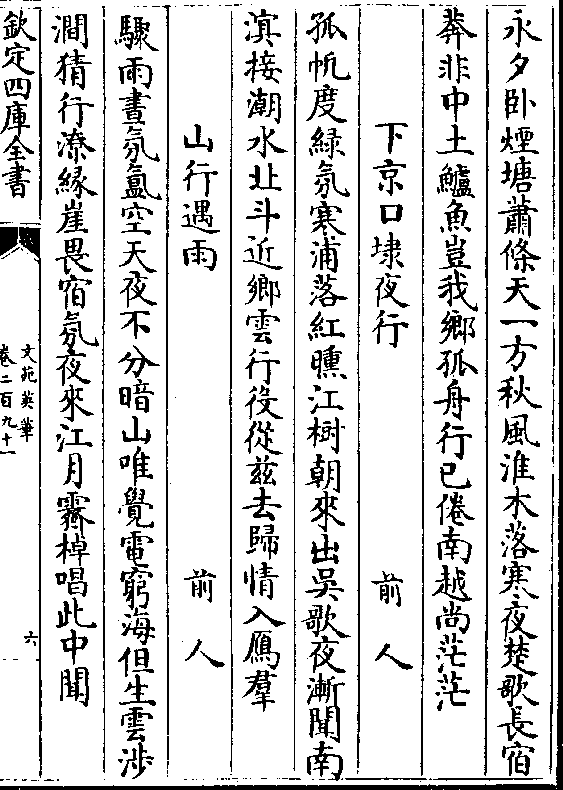 永夕卧煙塘蕭條天一方秋風淮木落寒夜楚歌長宿
莽非中土鱸魚豈我鄉孤舟行已倦南越尚茫茫
下京口埭夜行 前人
孤帆度綠氛寒浦落紅曛江樹朝來出吳歌夜漸聞南
溟接潮水北斗近鄉雲行役從兹去歸情入鴈羣
山行遇雨 前人
驟雨晝氛氲空天夜不分暗山唯覺電窮海但生雲涉
澗猜行潦緣崖畏宿氛夜來江月霽棹唱此中聞
欽定四庫全書
文苑英華
卷二百九十一
六